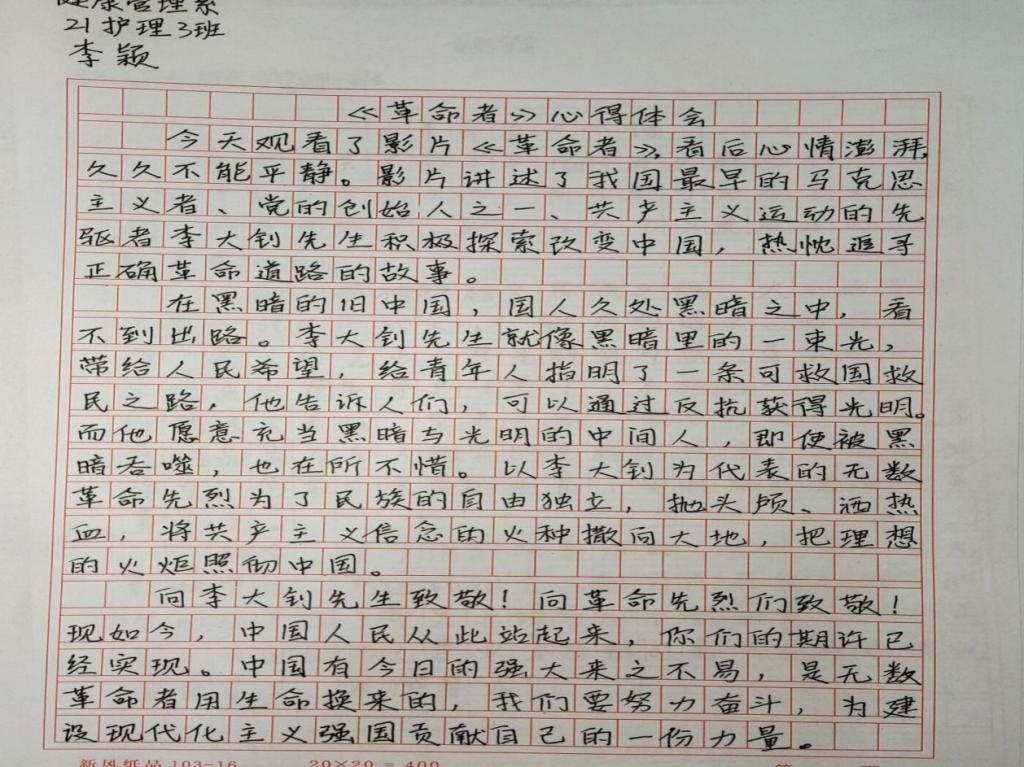 健康管理系
21护理3班
李颖
《革命者》心得体会
今天观看了影片《革命者》,看后心情澎湃,
久久不能平静。影片讲述了我国最早的马克思
主义者、党的创始人之一、共产主义运动的先
驱者李大钊先生积极探索改变中国，热忱追寻
正确革命道路的故事。
在黑暗的旧中国，国人久处黑暗之中，看
不到出路。李大钊先生就像黑暗里的一束光，
带给人民希望，给青年人指明了一条可救国救
民之路，他告诉人们，可以通过反抗获得光明。
而他愿意充当黑暗与光明的中间人，即使被黑
暗吞噬，也在所不惜。以李大钊为代表的无数
革命先烈为了民族的自由独立，抛头颅、洒热
血，将共产主义信念的火种撒向大地，把理想
的火炬照彻中国。
向李大钊先生致敬！向革命先烈们致敬！
现如今，中国人民从此站起来，你们的期许已
经实现。中国有今日的强大来之不易，是无数
革命者用生命换来的，我们要努力奋斗，为建
设现代化主义强国贡献自己的一份力量。
新风纸品 103-16 20×20=400